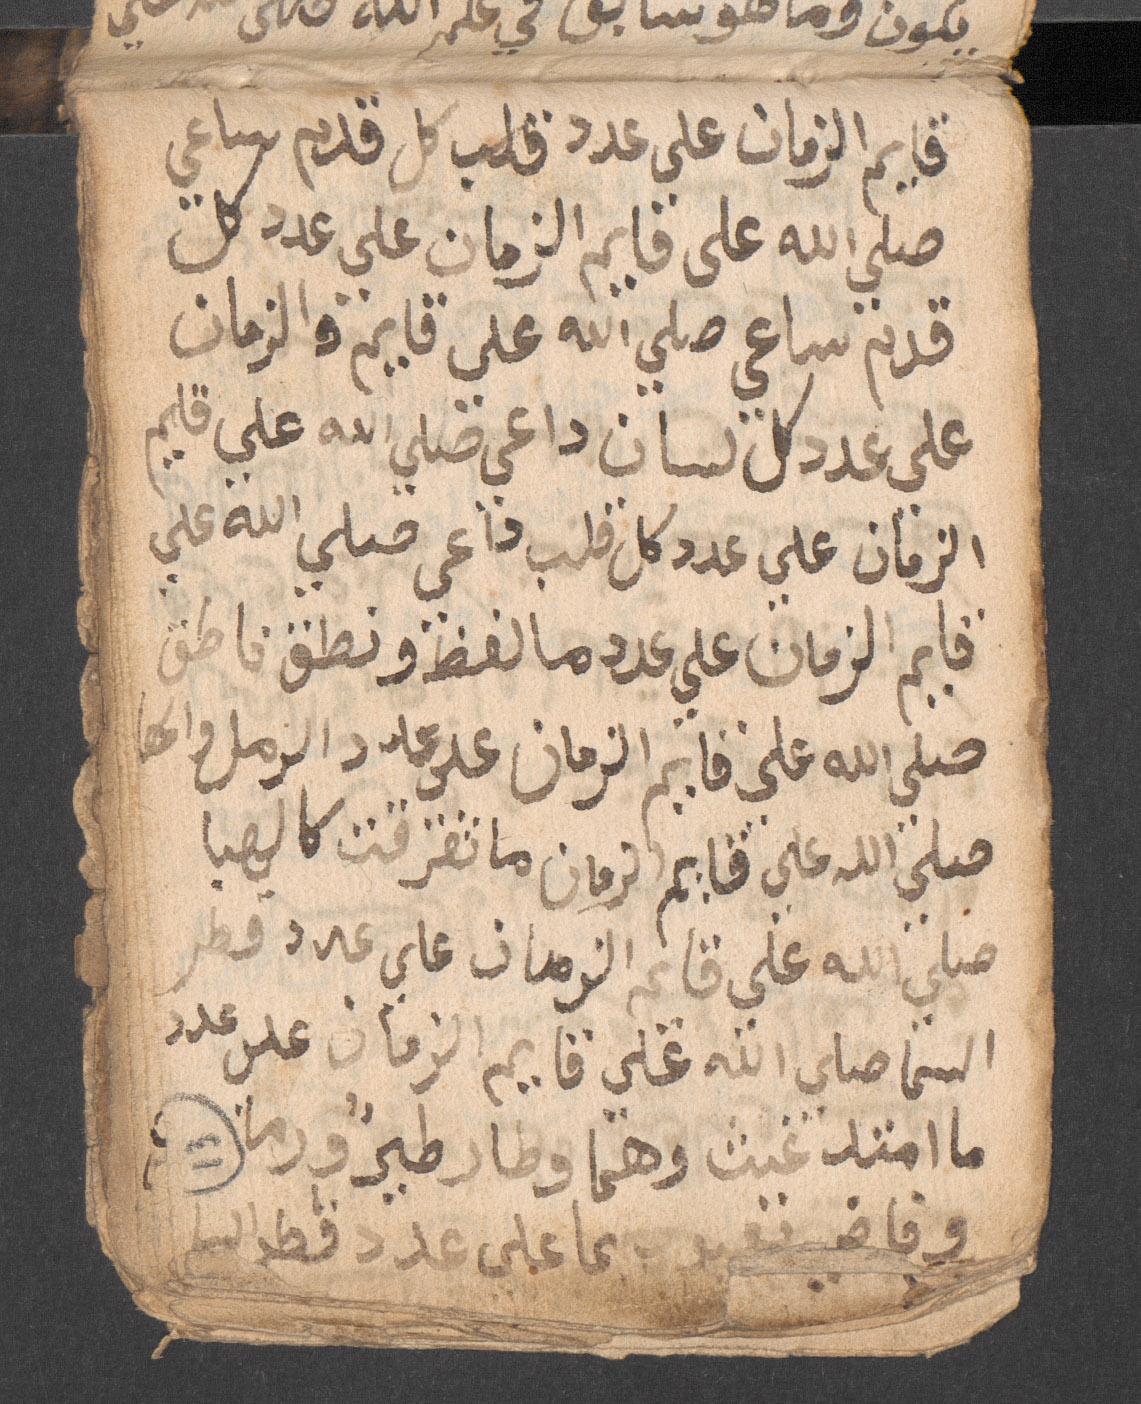 يكون وما هو سابق في علم الله صلى الله علي
قايم الزمان على عدد قلب كل قدم ساعي
صلي الله على قايم الزمان علي عدد كل
قدم ساعي صلي الله على قايم والزمان
على عدد كل لسان داعي صلي الله علي قايم
الزمان علي عدد كل قلب داعي صلي الله علي
قايم الزمان علي عدد ما لفظ ونطق ناطق
صلي الله علي قايم الزمان على عدد الرمل
صلي الله علي قايم الزمان ما تفرقت كالهبا
صلي الله على قايم الزمان علي عدد قطر
السما صلى الله علي قايم الزمان على عدد
ما امتد غيث وهما وطار طير ورما
وفاض بما على عدد قطر
١١